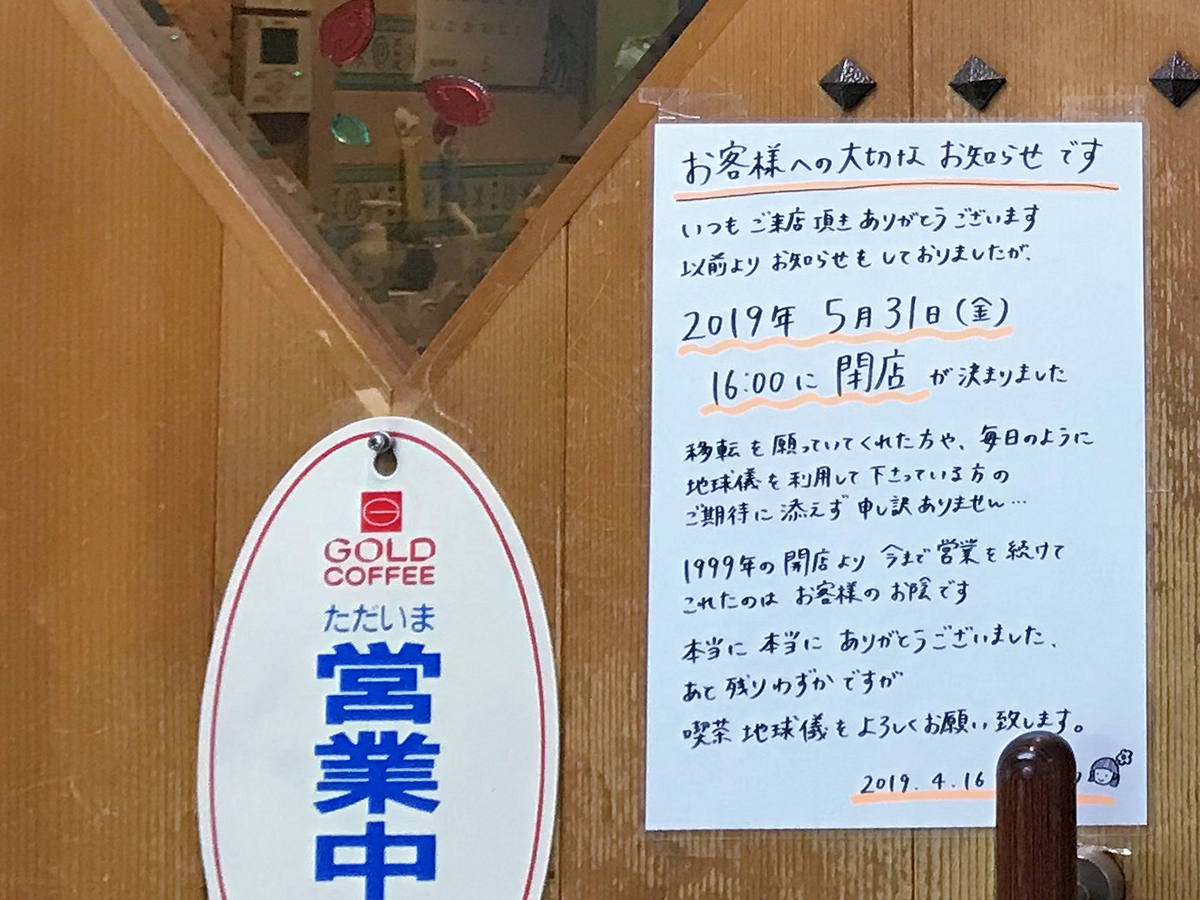 お客様への大切な お知らせ です
いつも ご来店 頂き ありがとうございます
以前より お知らせを しておりましたが、
2019年 5月31日(金)
16:00に 閉店 が 決まりました
移転を願っていてくれた方や、毎日のように
地球儀を利用して下さっている方の
ご期待に 添えず 申し訳ありません…
1999年の 開店より 今まで 営業を 続けて
これたのは お客様の お陰です
本当に 本当に ありがとうございました、
あと 残り わずか ですが
喫茶 地球儀を よろしくお願い 致します。
2019.4.16
GOLD
COFFEE
ただいま
営業中